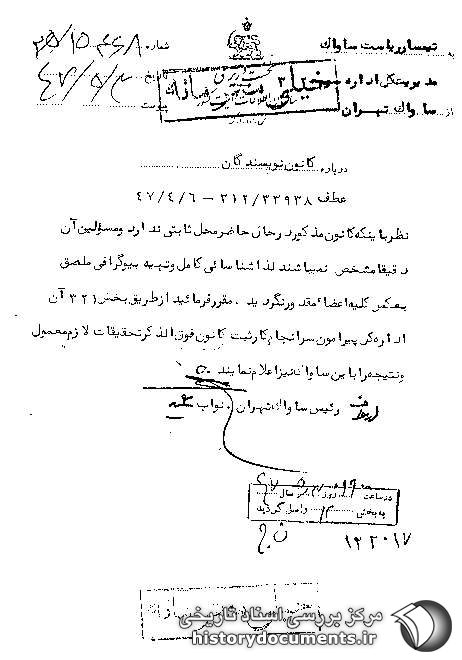 به تیمسار ریاست ساواك شماره
مدیریت کل اداره تاریخ
از ساواك تهران پیوست
خیلی محرمانه
درباره کانون نویسندگان
عطف ۳۱۲/۳۲۹۳۸ - ۴۷/۴/۶
نظر باینکه کانون مذکور در حال حاضر محل ثابتی ندارد و مسئولین آن
دقیقا مشخص نمیباشند لذا شناسائی کامل و تهیه بیوگرافی ملصق
بعکس کلیه اعضاء مقدور نگردید . مقرر فرمائید از طریق بخش ۳۲۱ آن
اداره کل پیرامون سرانجام کار ثبت کانون فوق الذکر تحقیقات لازم معمول
و نتیجه را باین ساواك نیز اعلام نمایند
رئیس ساواك تهران . نواب
در ساعت روز سال
به بخش واصل گردید
۱۲۲۰۱۷
مرکز بررسی اسناد تاریخی
historydocuments.ir